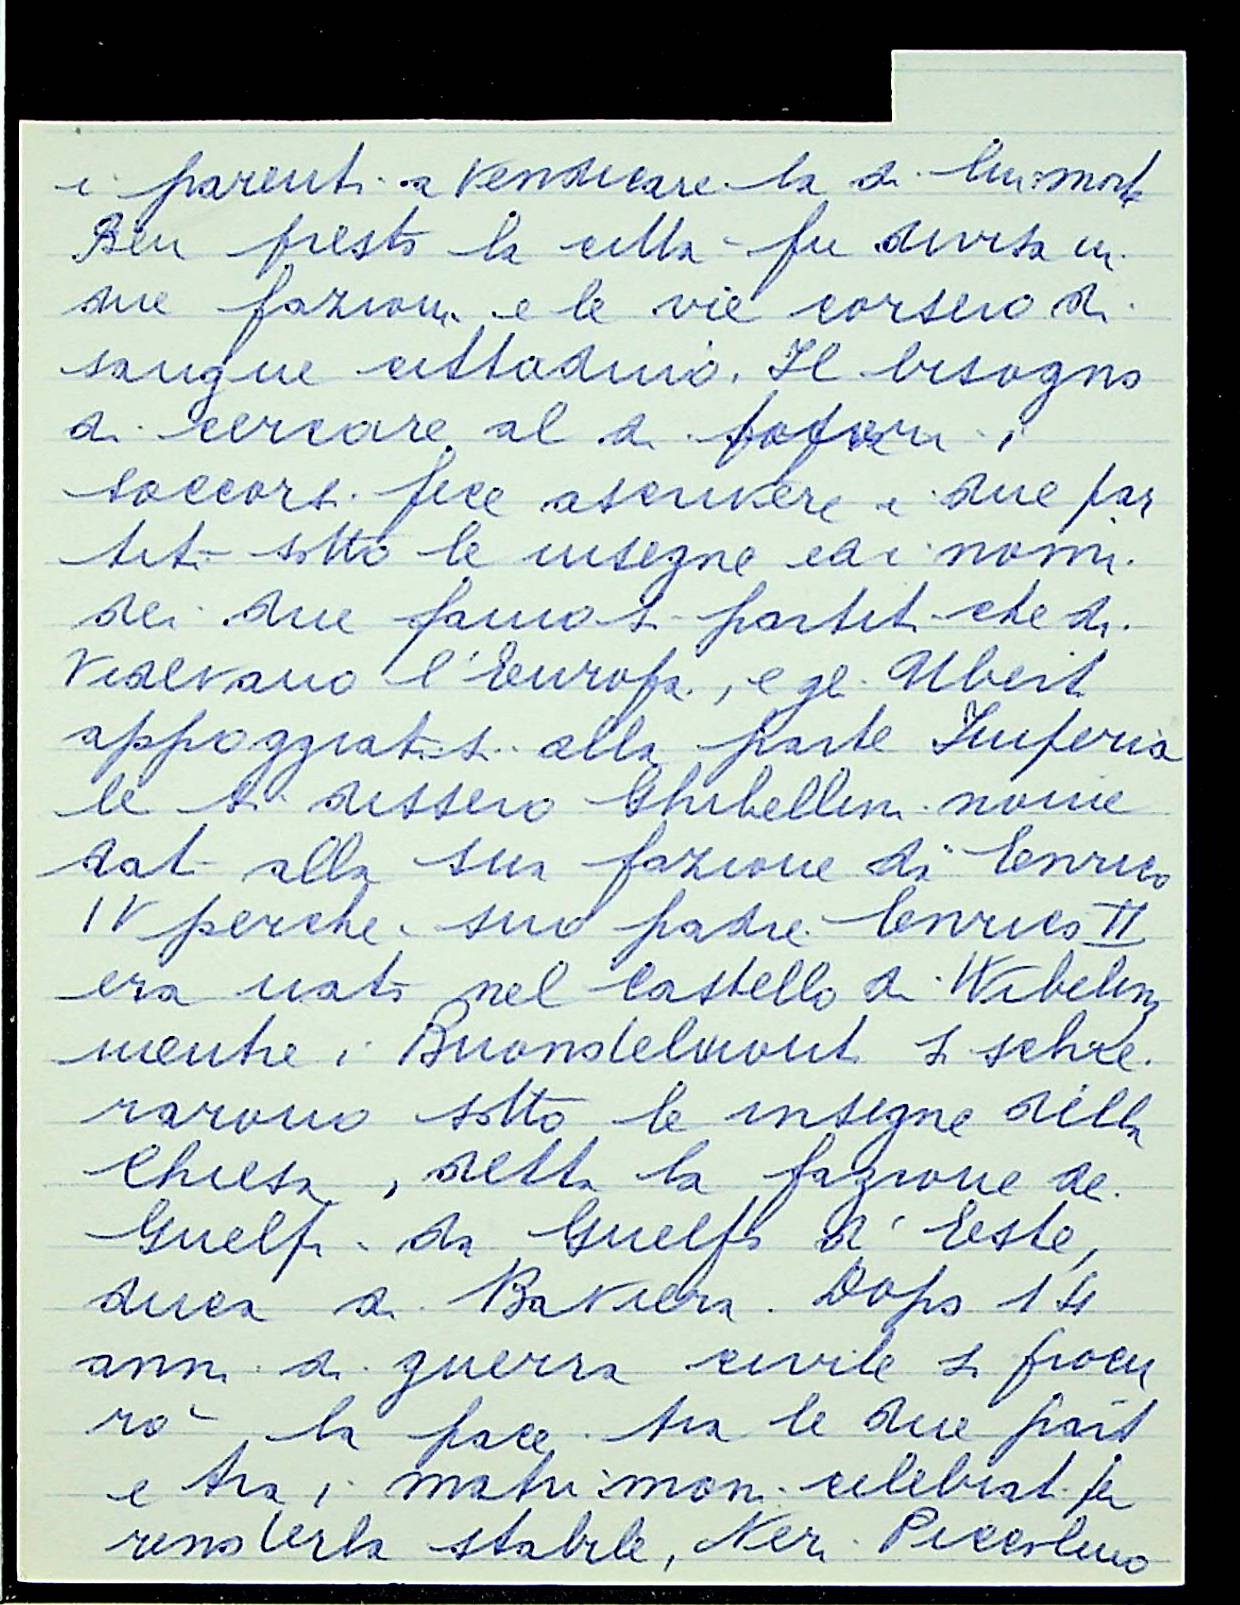 i parenti a vendicare la di lui morte
Ben presto la città fu divisa in
due fazioni e le vie corsero di
sangue cittadino. Il bisogno
di cercare al di fuori i
soccorsi fece ascrivere i due par
titi sotto le insegne ed i nomi
dei due famosi partiti che di
videvano l'Europa, e gli Uberti
appoggiatisi alla parte Imperia
le si dissero Ghibellini nome
dato alla sua fazione da Enrico
IV perche suo padre Enrico II
era nato nel Castello di Wibelin,
mentre i Buondelmonti si schie
rarono sotto le insegne della
Chiesa, detta la fazione de
Guelfi da Guelfo d'Este,
duca di Baviera. Dopo 14
anni di guerra civile si procu
rò la pace tra le due parti
e tra i matrimoni celebrati per
renderla stabile, Neri Piccolino